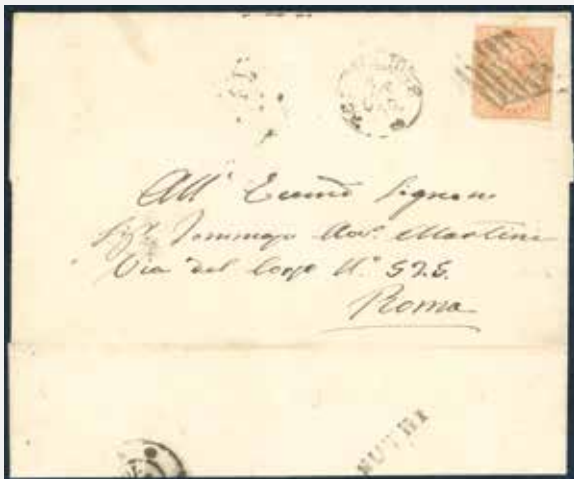 All' Eccmo Signore
Sigr. Tommaso Avv. Martini
Via del Corso N.° 525.
Roma
SUTRI